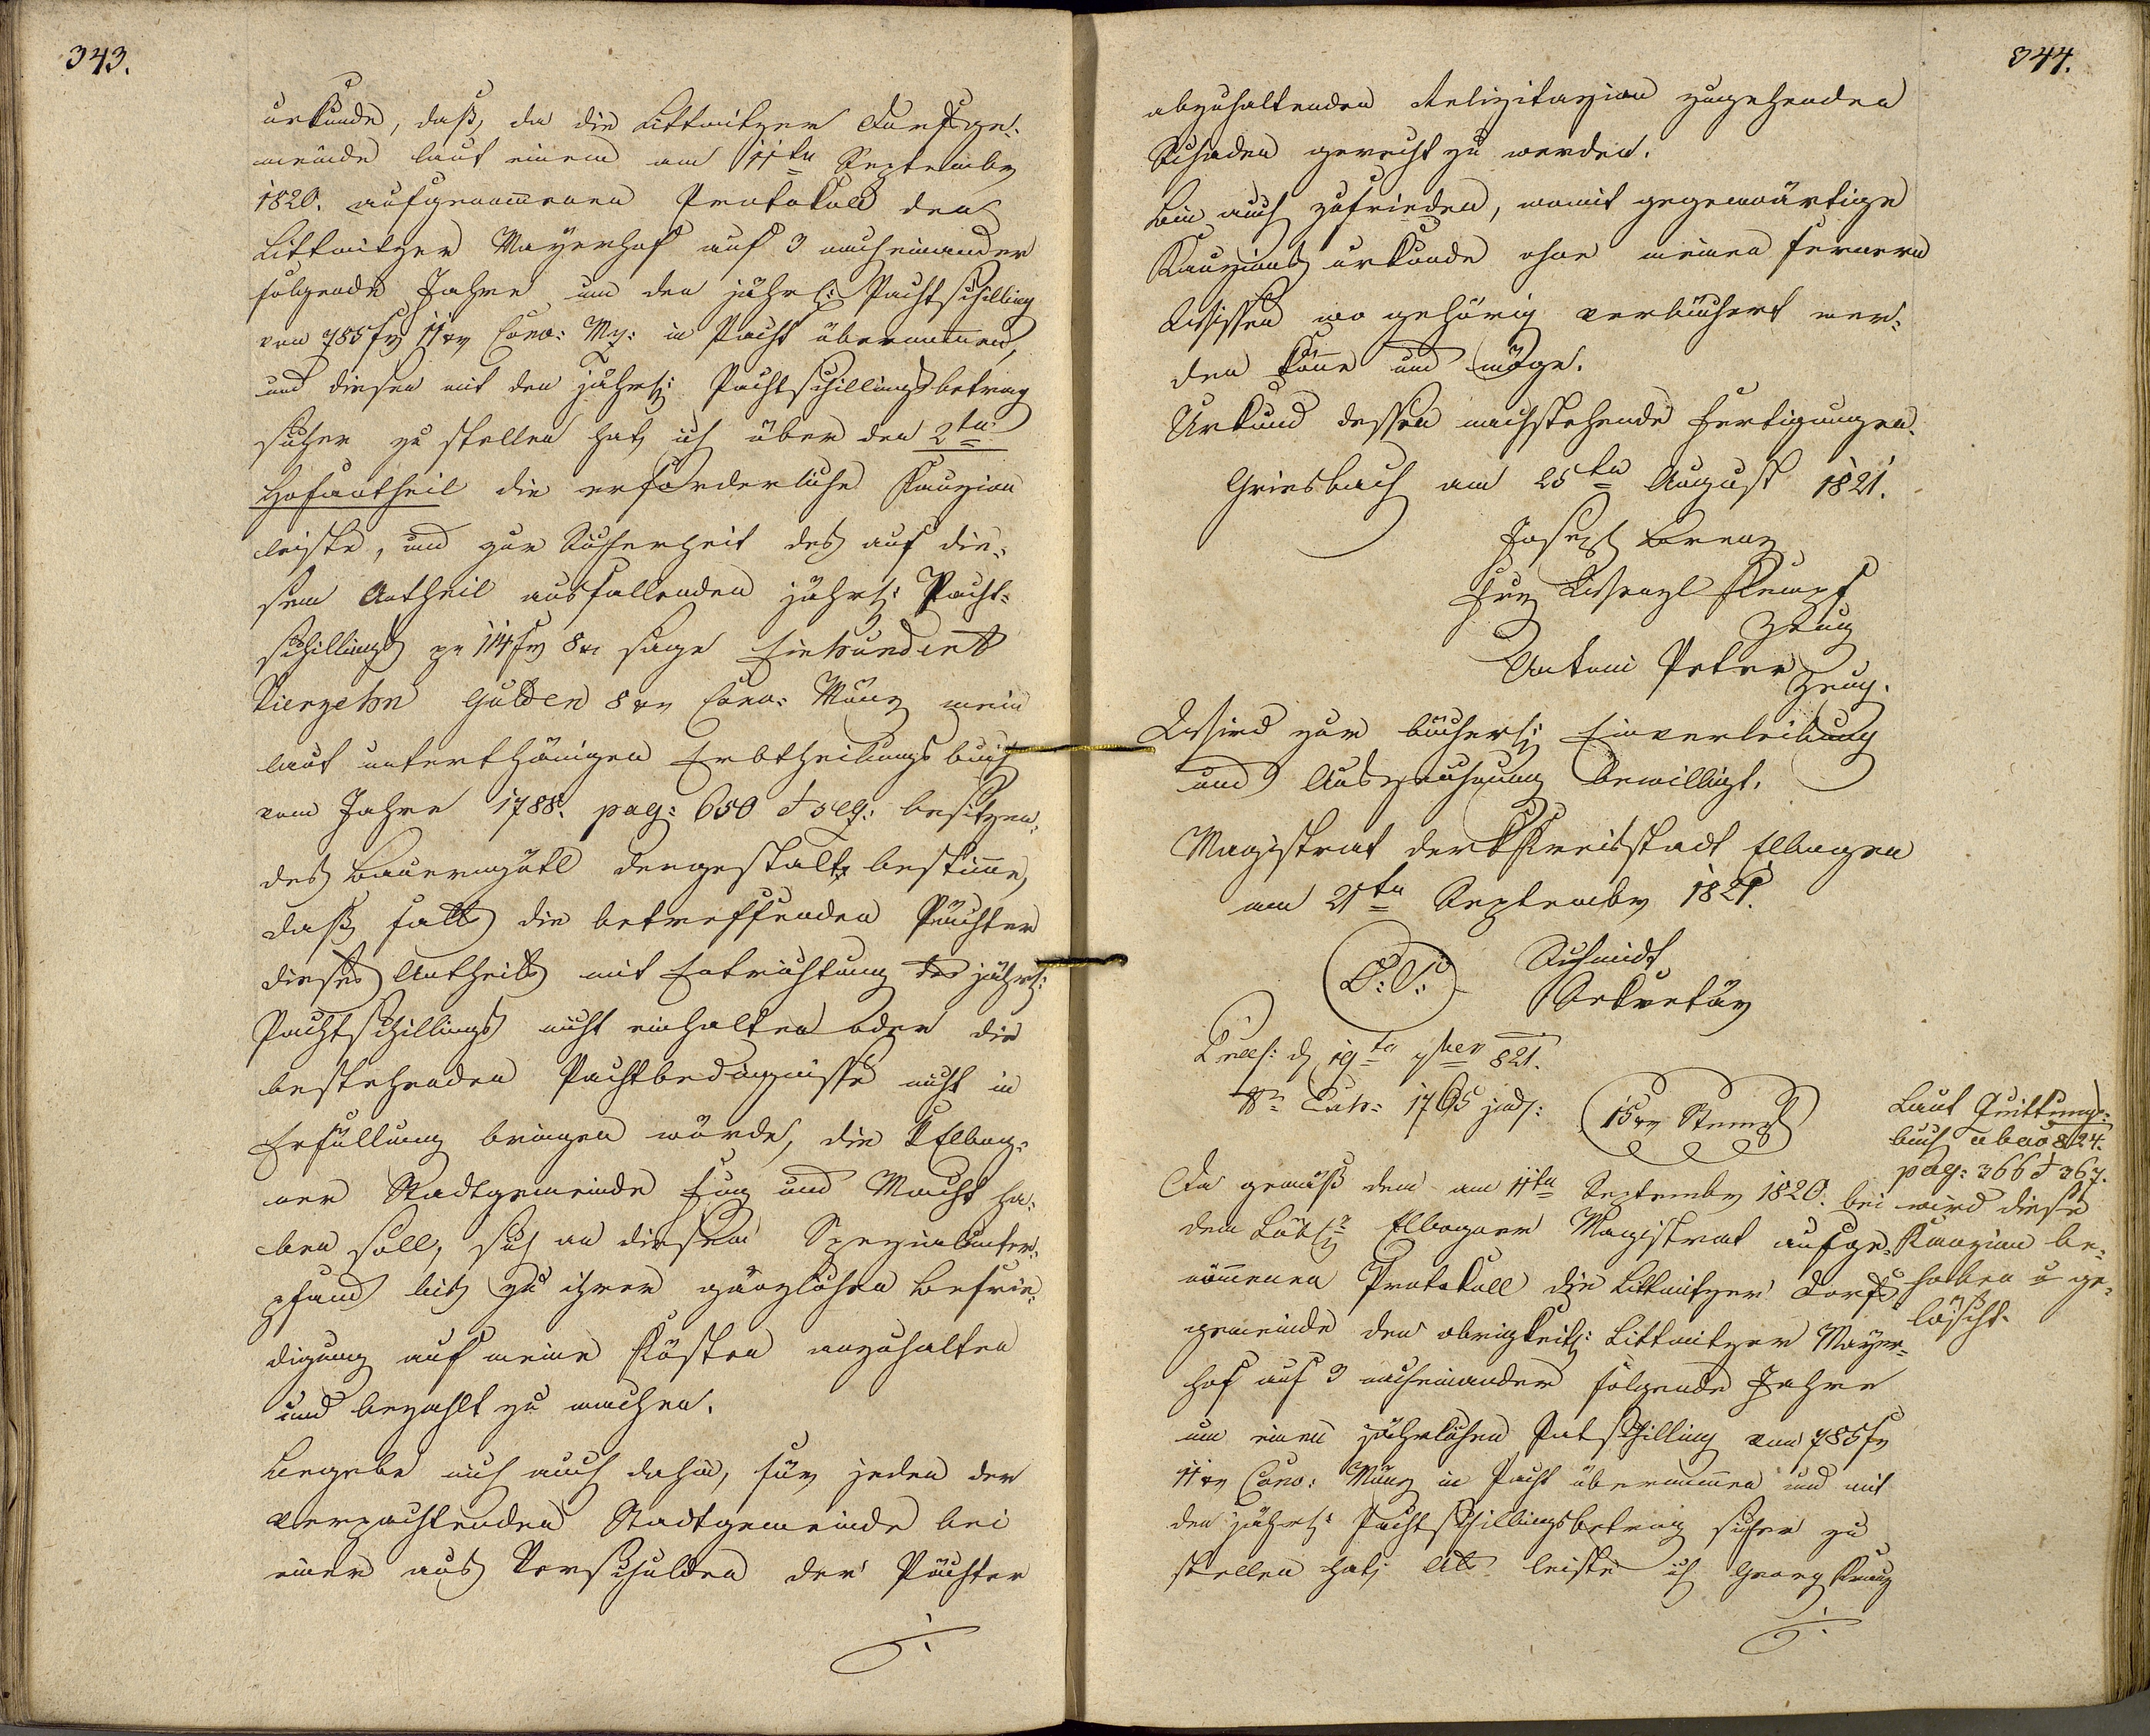 343.
urkunde, daß, da die Littmitzer Dorfsge-
meinde laut einem am 11ten Septembr
1820. aufgenommenen Protokoll den
Littmitzer Mayerhof auf 3 nacheinander
folgende Jahre um den jährl: Pachtschilling
von 785 fr 11 xr Conv: Mz: in Pacht übernommen,
und diesen mit den jährl: Pachtschillingsbetrag
sicher zu stellen hat, ich über den 2ten
Hofantheil die erforderliche Kauzion
leiste, und zur Sicherheit des auf die-
sem Antheil ausfallenden jährl: Pacht-
schillings pr 114 fr 8 xr sage Einhundert
Vierzehn Gulden 8 xr Conv: Münz mein
laut unterthänigen Erbtheilungsbuch
vom Jahre 1788. pag: 650 et seq: besitzen-
des Bauerngütl dergestalt bestimme,
daß falls die betreffenden Pächter
dieses Antheils mit Entrichtung des jährl:
Pachtschillings nicht einhalten oder die
bestehenden Pachtbedingnisse nicht in
Erfüllung bringen würde, die Elbog-
ner Stadtgemeinde Fug und Macht ha-
ben soll, sich an diesem Spezialunter-
pfand bis zu ihrer gänzlichen Befrie-
digung auf meine Kösten anzuhalten
und bezahlt zu machen.
Begebe mich auch dahin, für jeden der
verpachtenden Stadtgemeinde bei
einer aus Verschulden der Pächter
344.
abzuhaltenden Relizitazion zugehenden
Schaden gerecht zu werden.
Bin auch zufrieden, womit gegenwärtige
Kauzionsurkunde ohne meinen fernern
Wissen wo gehörig verbüchert wer-
den könne und möge.
Urkund dessen nachstehende Fertigungen.
Griesbach am 25ten August 1821.
Joseph Lorenz
Frz Wenzl Kempf
Zeug
Antoni Peter
Zeug.
Wird zur bücherl: Einverleibung
und Auszeichnung bewilligt.
Magistrat der K Kreisstadt Elbogen
am 21ten Septembr 1821.
L: S:
Schmidt
Sekretär
Præs: d 19ten 7ber 821.
Nr Exh: 1765 jud:
15 xr Stempl
Laut Quittungs-
buch abao 824.
pag: 366 et 367.
wird diese
Kauzion be-
hoben u ge-
löscht.
Da gemäß dem am 11ten Septembr 1820. bei
dem Löbl: Elbogner Magistrat aufge-
nommenen Protokoll die Littmitzer Dorfs
gemeinde den obrigkeitl: Littmitzer Mayer-
hof auf 3 nacheinander folgende Jahre
um einen jährlichen Patschilling von 785 fr
11 xr Conv: Münz in Pacht übernommen und mit
den jährl: Pachtschillingsbetrag sicher zu
stellen hat; Als leiste ich Georg Kranz